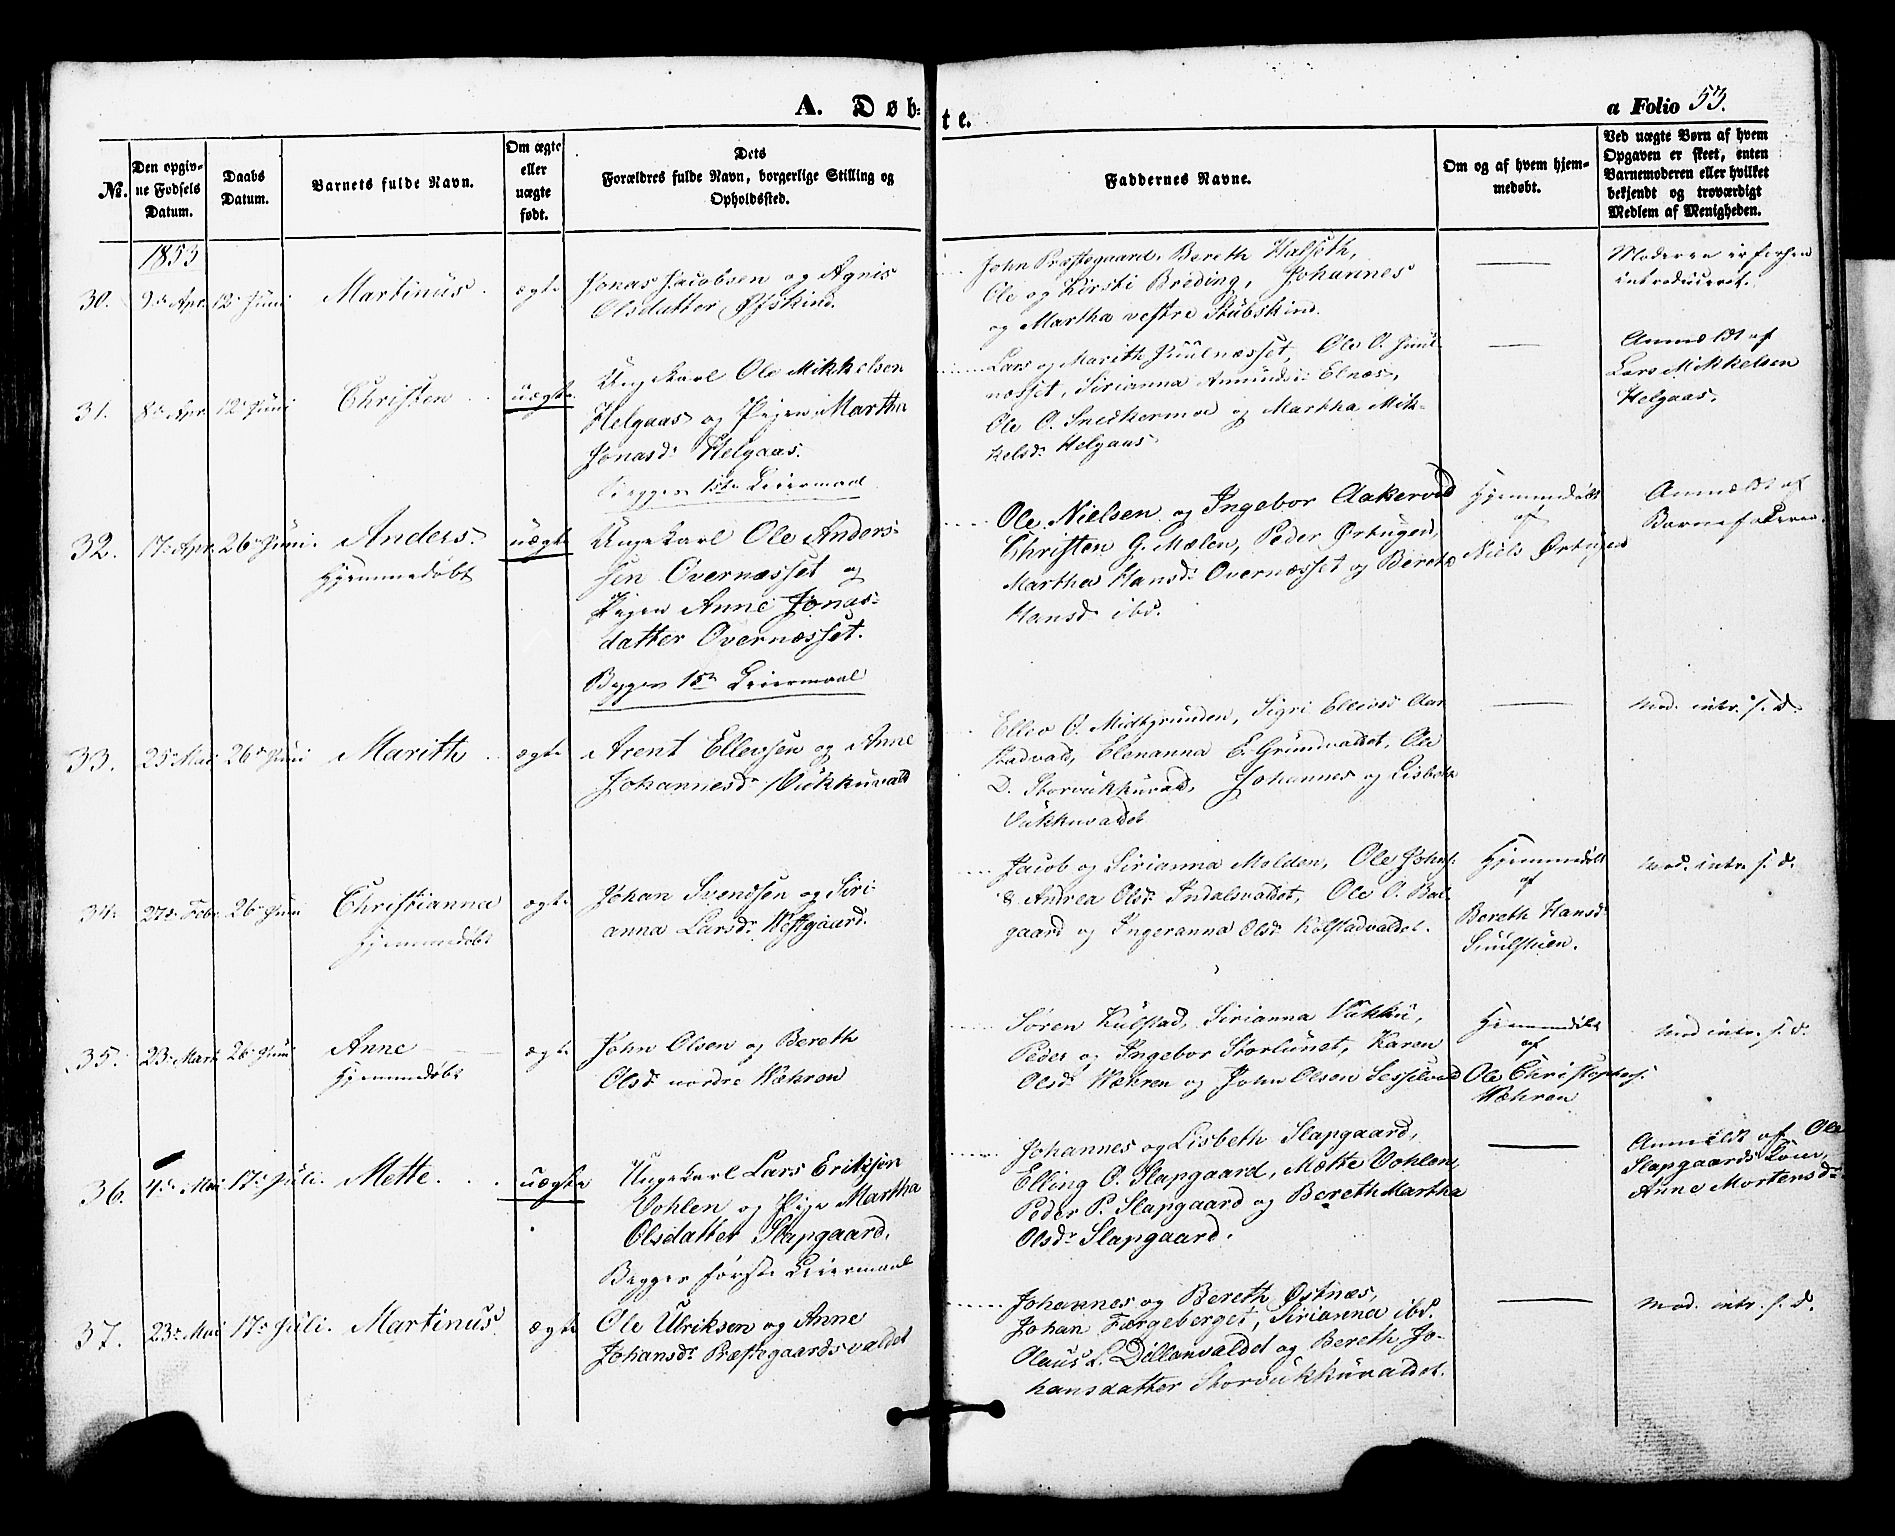 A. Døb-
te.
a Folio 53.
No.
Den opgiv-
ne Fødsels
Datum.
Daabs
Datum.
Barnets fulde Navn.
Om ægte
eller
uægte
født.
Dets
Forældres fulde Navn, borgerlige Stilling og
Opholdssted.
Faddernes Navne.
Om og af hvem hjem-
medøbt.
Ved uægte Børn af hvem
Opgaven er skeet, enten
Barnemoderen eller hvilket
bekjendt og troværdigt
Medlem af Menigheden.
1853
30. 9de Apr. 12te Juni Martinus. ægte
Jonas Jacobsen og Agnis
Olsdatter Øfskind.
John Præstegaard, Bereth Halseth,
Ole og Kirsti Breding, Johannes
og Martha vestre Stubskind.
Moderen er forhen
introduceret.
31. 8de Apr. 12te Juni Christen uægte
Ungkarl Ole Mikkelsen
Helgaas og Pigen Martha
Jonasdr Helgaas.
Begges 1ste Leiermaal
Lars og Marith Juulnæsset, Ole O. Juul-
næsset, Sirianna Amunds: Elnæs,
Ole O. Snedkermoe og Martha Mik-
kelsdr Helgaas.
Anmeldt af
Lars Mikkelsen
Helgaas.
32. 17de Apr. 26de Juni. Anders. uægte
Hjemmedøbt
Ungekarl Ole Anders-
sen Overnæsset og
Pigen Anne Jonas-
datter Overnæsset.
Begges 1ste Leiermaal
Ole Nielsen og Ingebor Aakervold
Christen G. Mælen, Peder Ørtugen,
Martha Hansdr Overnæsset og Bereth
Hansd ibd.
Hjemmedøbt
af
Niels Ørtugen
Anmeldt af
Barnefaderen.
33. 25de Mai 26de Juni Marith ægte
Arent Ellevsen og Anne
Johannesdr Vukkuvald
Ellev O. Midtgrunden, Sigri Ellevsd Aar
stadvald, Elenanna E. Grundvaldet, Ole
D. Storvukkuvald, Johannes og Lisbeth
Vukkuvaldet
Mod. intr. s. d.
34. 27de Febr. 26de Juni Christianna ægte
Hjemmedøbt
Johan Svendsen og Siri-
anna Larsdr Vestgaard.
Jacob og Sirianna Molden, Ole Johns.
& Andrea Olsdr Indalsvaldet, Ole O. Bal-
gaard og Ingeranna Olsdr Kolstadvaldet.
Hjemmedøbt
af
Bereth Hansdr
Suulstuen.
Mod. intr. s. d.
35. 23de Mart 26de Juni Anne ægte
Hjemmedøbt
John Olsen og Bereth
Olsdr nordre Wæhren
Søren Kulstad, Sirianna Vukku,
Peder og Ingebor Storlunet, Karen
Olsdr Wæhren og John Olsen Sesselvold
Hjemmedøbt
af
Ole Christophers.
Wæhren
Mod intr. s. d.
36. 4de Mai 17de Juli. Mette. uægte
Ungekarl Lars Eriksen
Vohlen og Pige Martha
Olsdatter Slapgaard.
Begges første Leiermaal
Johannes og Lisbeth Slapgaard,
Elling O. Slapgaard, Mætte Vohlen,
Peder P. Slapgaard og Bereth Martha
Olsdr Slapgaard.
Anmeldt af Ole
Slapgaards Kone,
Anne Mortensdr
37. 23de Mai 17de Juli. Martinus ægte
Ole Ulriksen og Anne
Johansdr Præstegaardsvaldet
Johannes og Bereth Østnæs,
Johan Færgeberget, Sirianna ibd.
Olaus L. Dillanvaldet og Bereth Jo-
hansdatter Storvukkuvaldet.
Mod. intr. s. d.